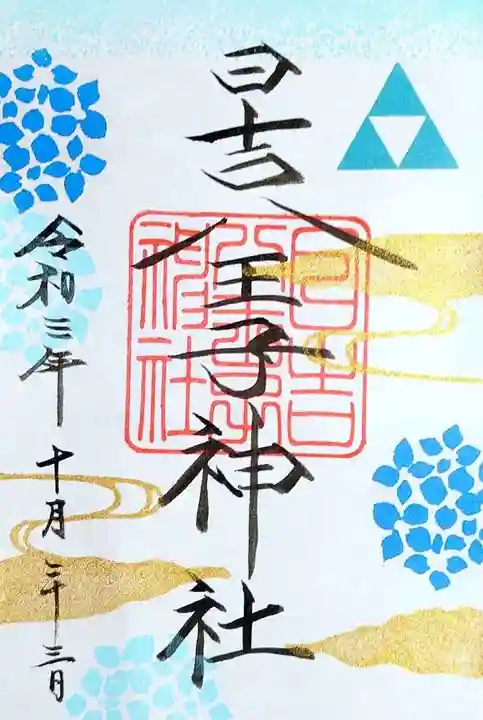 日吉八王子神社
日吉八王子神社
令和三年十月二十三日